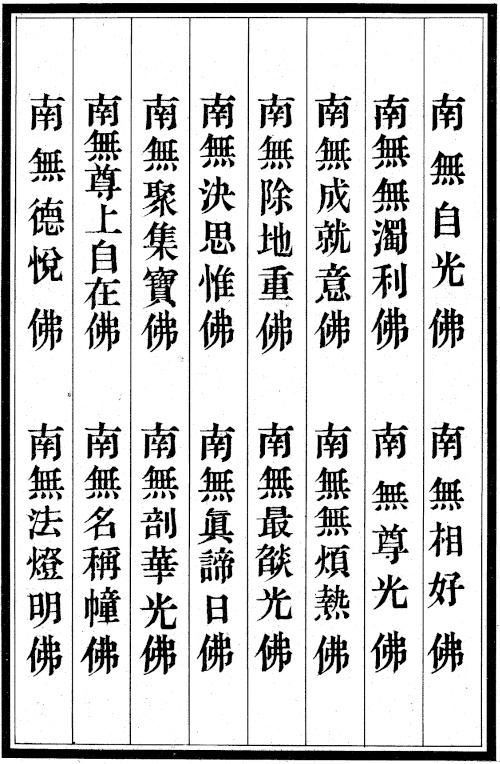 南無自光佛　南無相好佛
南無無濁利佛　南無尊光佛
南無成就意佛　南無無煩熱佛
南無除地重佛　南無最燄光佛
南無決思惟佛　南無眞諦日佛
南無聚集寶佛　南無剖華光佛
南無尊上自在佛　南無名稱幢佛
南無德悅佛　南無法燈明佛